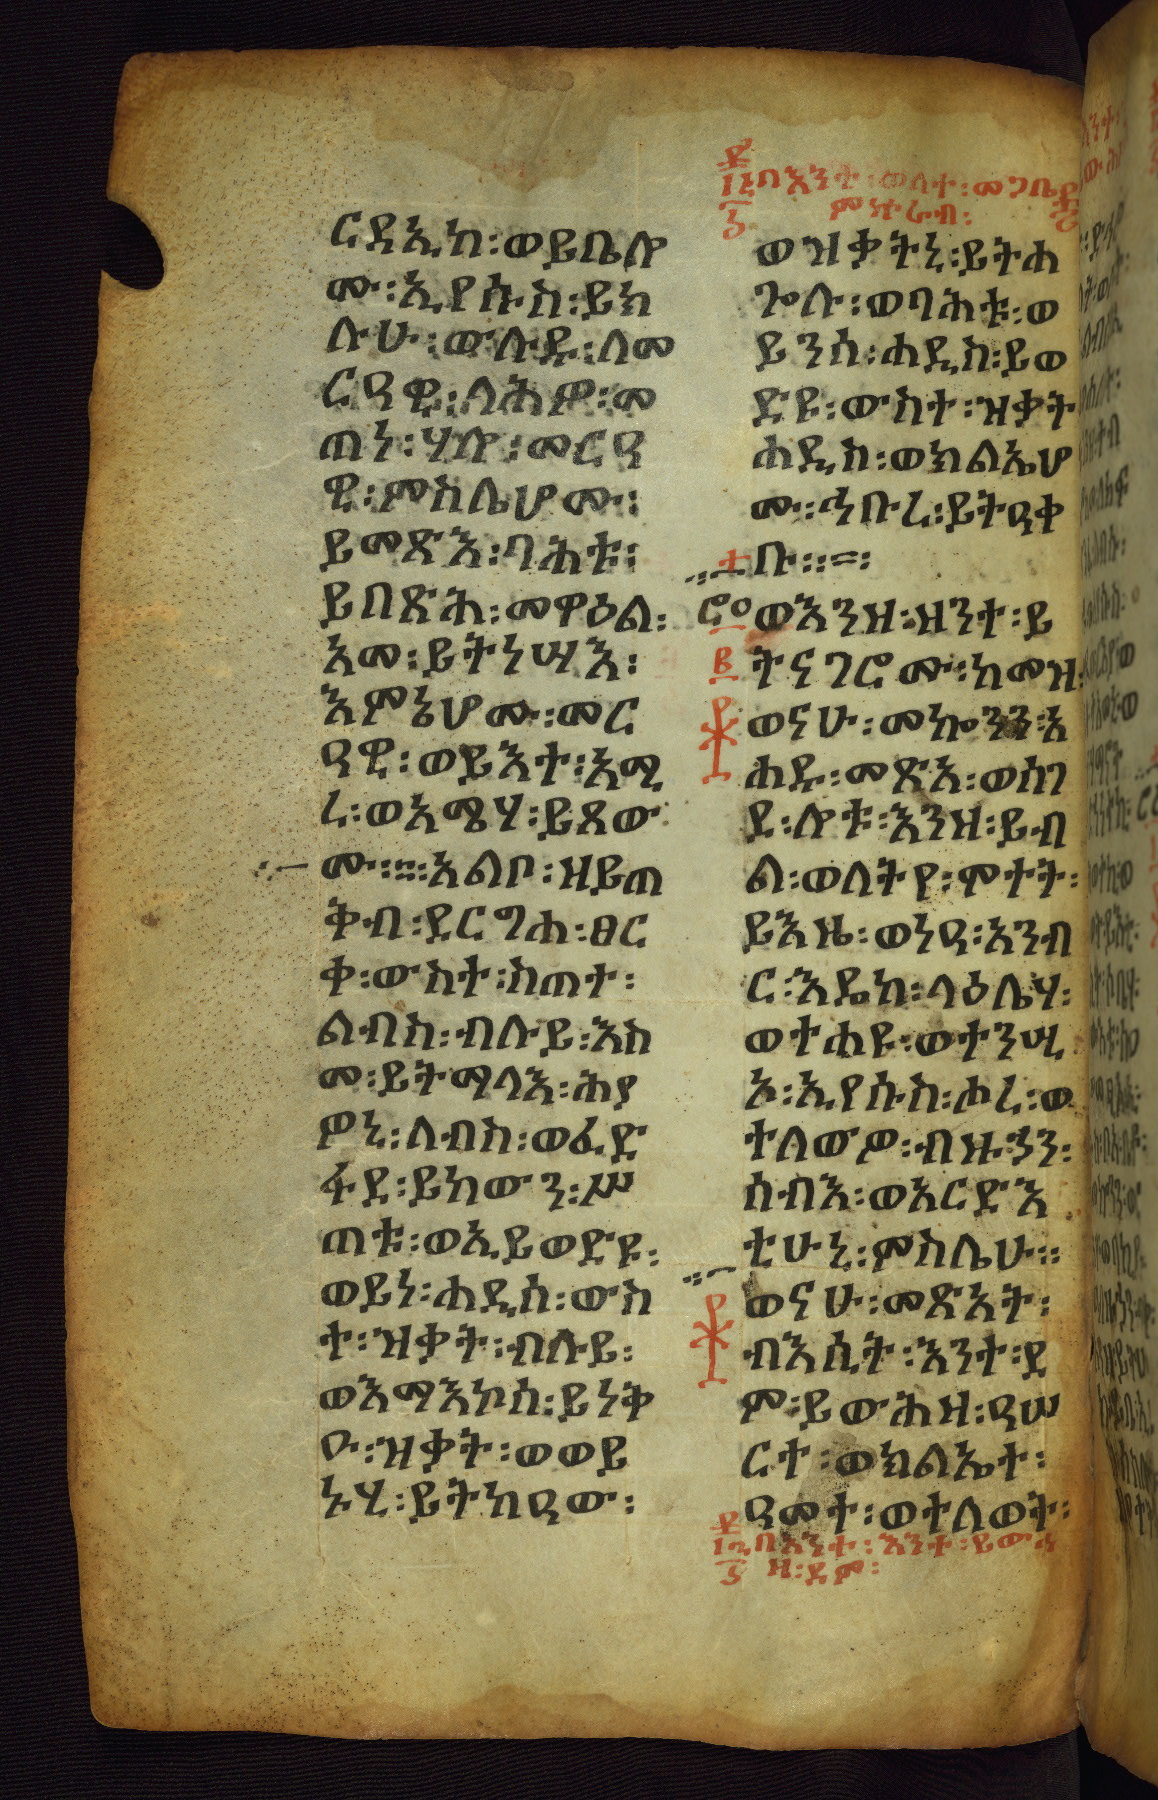 ርዳኢከ፡ወይቤሎ
ሙ፡ኢየሱስ፡ይክ
ሉሁ፡ውሉዱ፡ለመ
ርዓዊ፡ላሕዎ፡መ
ጠነ፡ሃሎ፡መርዓ
ዊ፡ምስሌሆሙ፡
ይመጽእ፡ባሕቱ፡
ይበጽሕ፡መዋዕል፡
አመ፡ይትነሣእ፡
እምኔሆሙ፡መር
ዓዊ፡ወይእተ፡አሚ
ረ፡ወአሜሃ፡ይጸው
ሙ።አልቦ፡ዘይጠ
ቅብ፡ድርግሐ፡ፀር
ቀ፡ውስተ፡ስጠተ፡
ልብስ፡ብሉይ፡እስ
መ፡ይትማላእ፡ሕያ
ዎኒ፡ለብስ፡ወፈድ
ፋደ፡ይከውን፡ሥ
ጠቱ፡ወኢይወድዩ፡
ወይነ፡ሐዲሰ፡ውስ
ተ፡ዝቃት፡ብሉይ፡
ወእማእኮሰ፡ይነቅ
ዑ፡ዝቃት፡ወወይ
ኑሂ፡ይትከዓው፡
በእንተ፡ወለተ፡መጋቤ
ምኵራብ፡
ወዝቃትኒ፡ይትሐ
ጐሉ፡ወባሕቱ፡ወ
ይንሰ፡ሐዲስ፡ይወ
ድዩ፡ውስተ፡ዝቃት
ሐዲስ፡ወክልኤሆ
ሙ፡ኅቡረ፡ይትዓቀ
ቡ።
ወእንዘ፡ዘንተ፡ይ
ትናገሮሙ፡ከመዝ፡
ወናሁ፡መኰንን፡አ
ሐዱ፡መጽአ፡ወሰገ
ደ፡ሎቱ፡እንዘ፡ይብ
ል፡ወለትየ፡ሞተት፡
ይእዜ፡ወነዓ፡አንብ
ር፡እዴከ፡ላዕሌሃ፡
ወተሐዩ፡ወተንሢ
ኦ፡ኢየሱስ፡ሖረ፡ወ
ተለውዎ፡ብዙኃን፡
ሰብእ፡ወአርድእ
ቲሁኒ፡ምስሌሁ።
ወናሁ፡መጽአት፡
ብእሲት፡እንተ፡ደ
ም፡ይውሕዘ፡ዓሠ
ርተ፡ወክልኤተ፡
ዓመተ፡ወተለወት፡
በእንተ፡እንተ፡ይውሕ
ዘ፡ደም፡